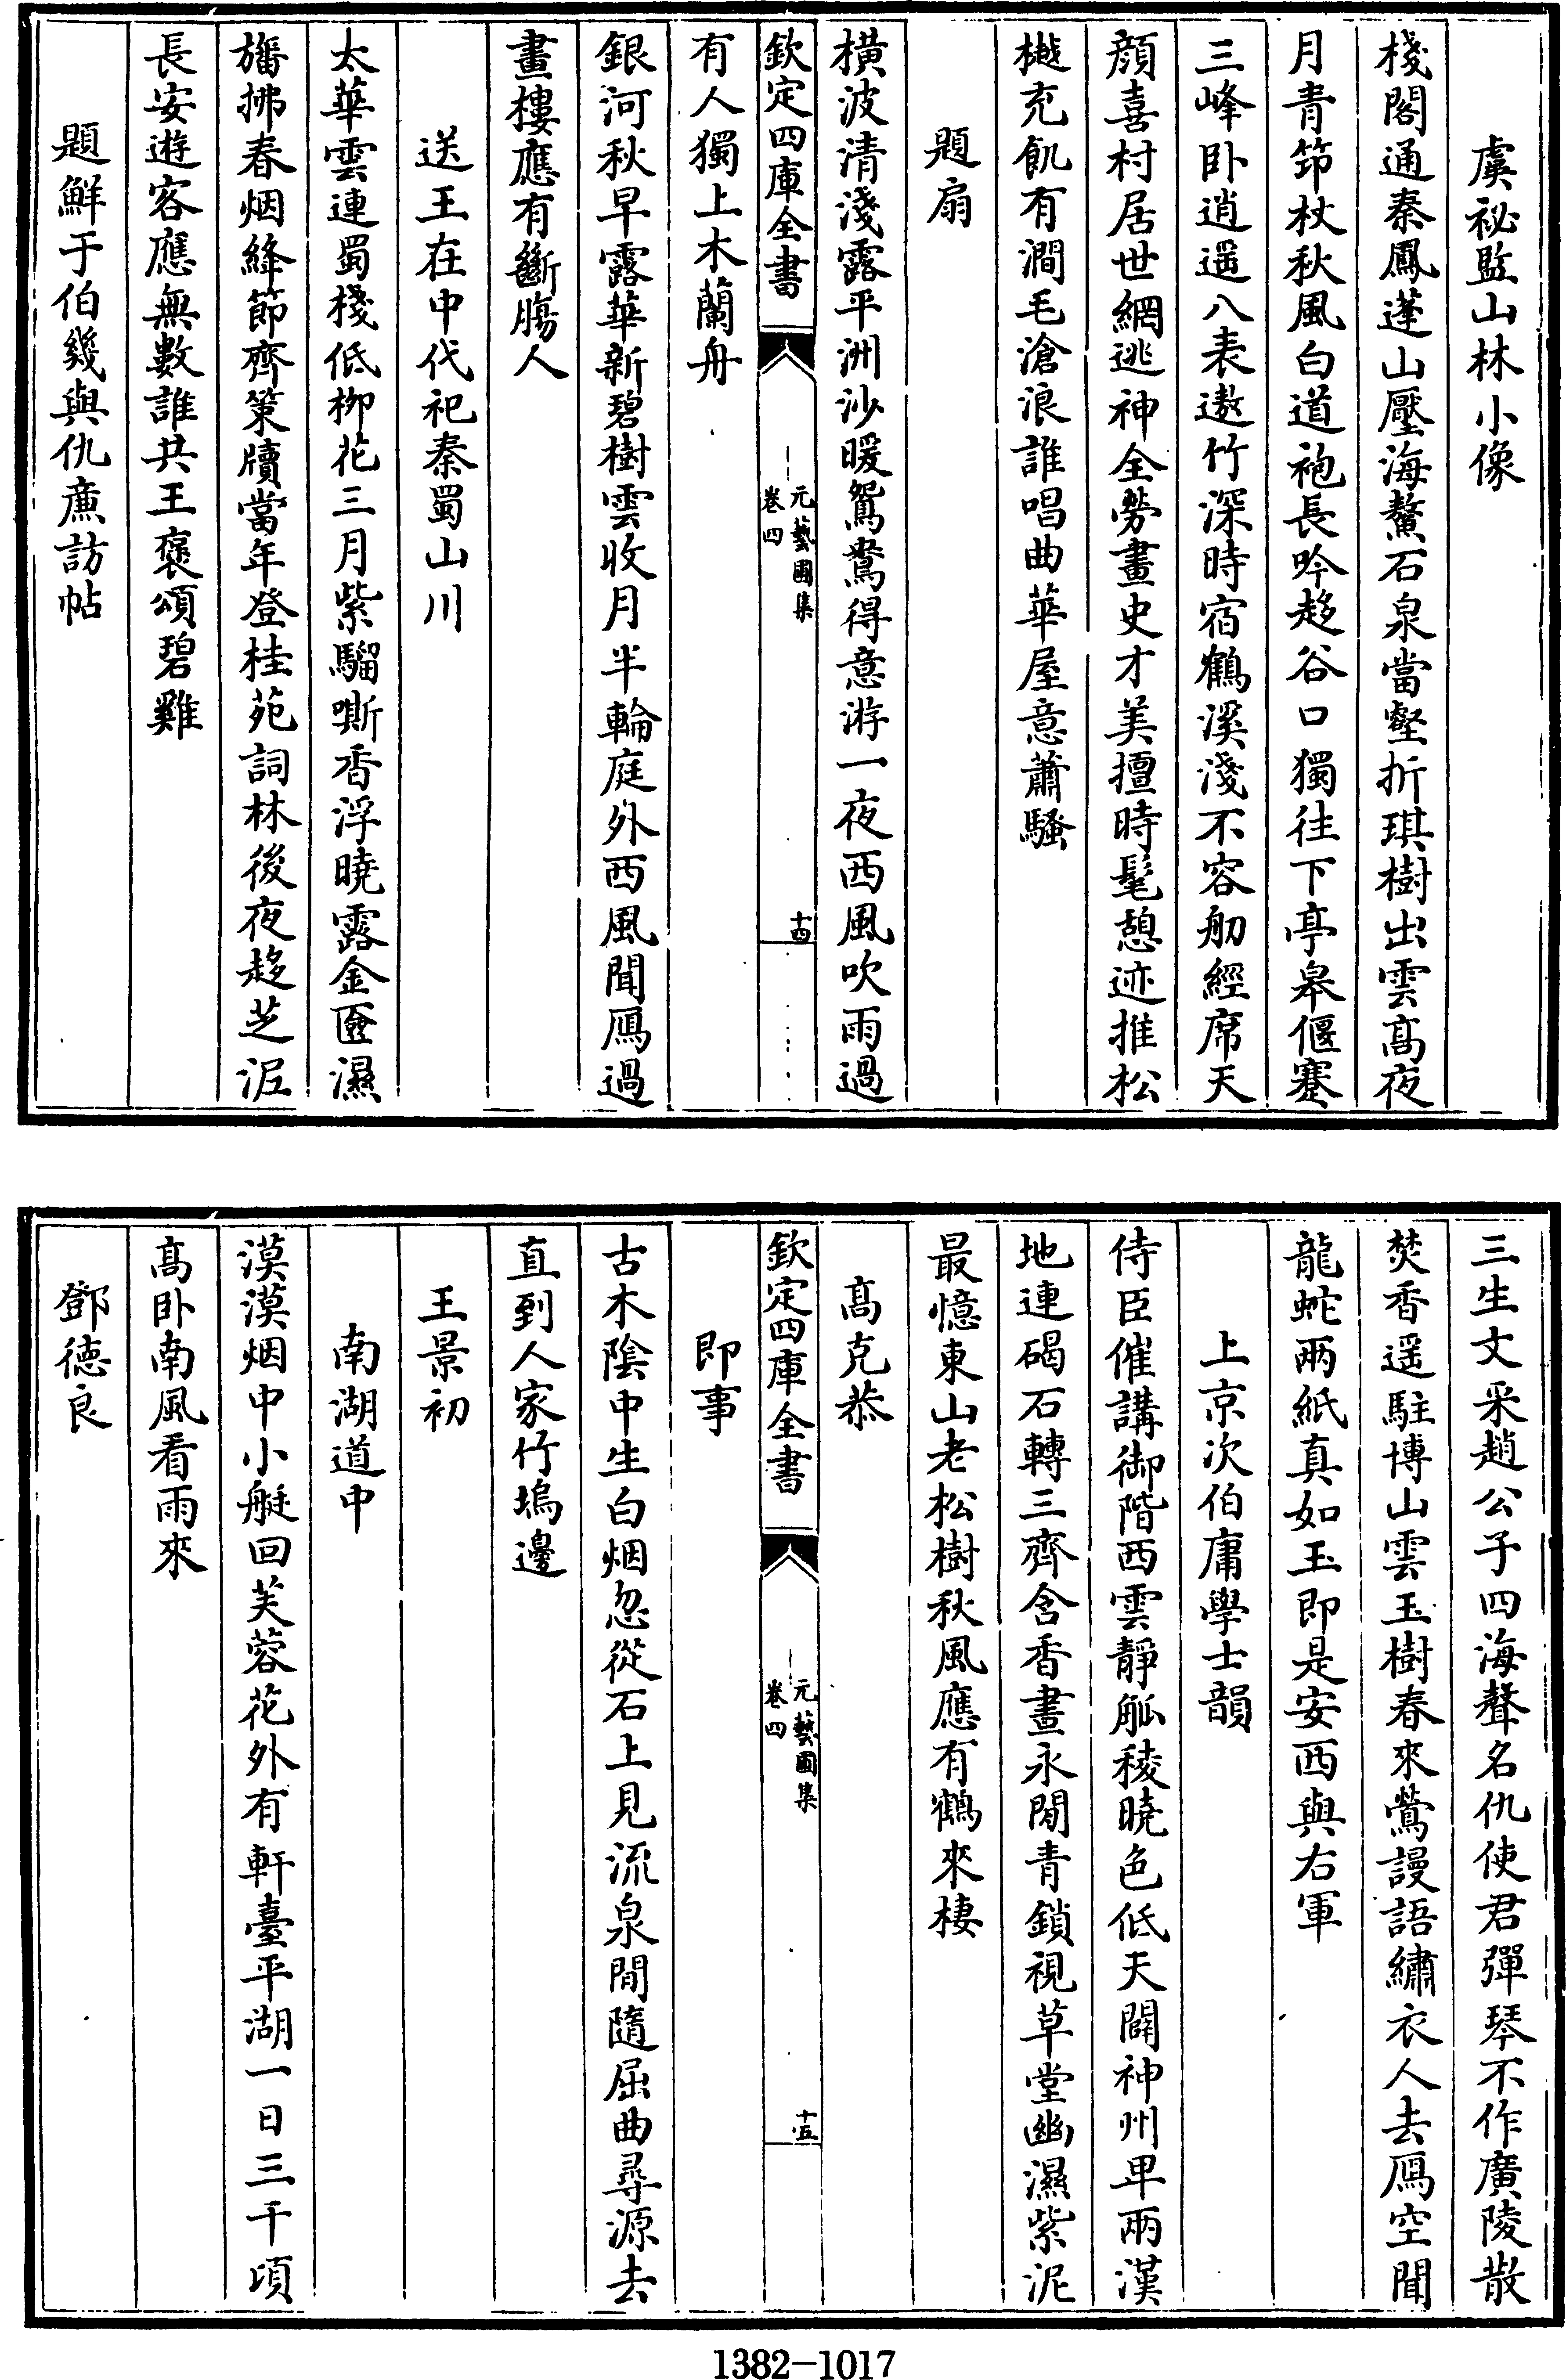 虞祕監山林小像
棧閣通秦鳳蓬山壓海鰲石泉當壑折琪樹出雲髙夜
月青笻杖秋風白道袍長吟趍谷口獨往下亭皋偃蹇
三峰卧逍遥八表遨竹深時宿鶴溪淺不容舠經席天
顔喜村居世網逃神全勞畫史才美擅時髦憩迹推松
樾充飢有澗毛滄浪誰唱曲華屋意蕭騷
題扇
橫波清淺露平洲沙暖鴛鴦得意游一夜西風吹雨過
欽定四庫全書
元藝圃集
卷四
十四
有人獨上木蘭舟
銀河秋早露華新碧樹雲收月半輪庭外西風聞鴈過
畫樓應有斷腸人
送王在中代祀秦蜀山川
太華雲連蜀棧低栁花三月紫騮嘶香浮曉露金匳濕
旛拂春烟絳節齊策牘當年登桂苑詞林後夜趍芝泥
長安遊客應無數誰共王褒頌碧雞
題鮮于伯幾與仇亷訪帖
三生文采趙公子四海聲名仇使君彈琴不作廣陵散
焚香遥駐博山雲玉樹春來鶯謾語繡衣人去鴈空聞
龍蛇兩紙真如玉即是安西與右軍
上京次伯庸學士韻
侍臣催講御階西雲靜觚稜曉色低天闢神州卑兩漢
地連碣石轉三齊含香晝永閒青鎖視草堂幽濕紫泥
最憶東山老松樹秋風應有鶴來棲
髙克恭
欽定四庫全書
元藝圃集
卷四
十五
即事
古木陰中生白烟忽從石上見流泉閒隨屈曲尋源去
直到人家竹塢邊
王景初
南湖道中
漠漠烟中小艇回芙蓉花外有軒臺平湖一日三千頃
髙卧南風看雨來
鄧德良
1382-1017